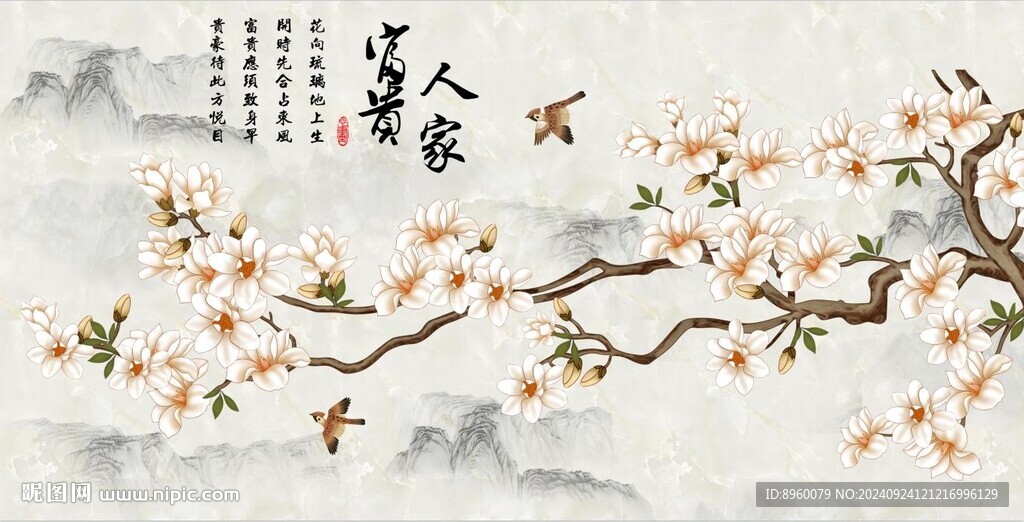 富貴
人家
花向琉璃地上生
開時先合占東風
富貴應須致身早
貴豪待此方悦目
昵图网 www.nipic.com
ID:8960079 NO:20240924121216996129